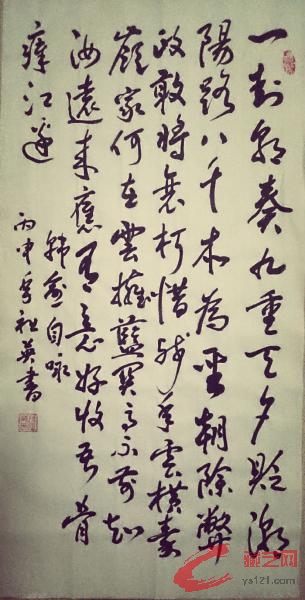 一封朝奏九重天夕貶潮
陽路八千本為聖朝除弊
政敢將衰朽惜殘年雲橫秦
嶺家何在雪擁藍關馬不前知
汝遠來應有意好收吾骨
瘴江邊
韓愈自咏
丙申 英書
艺网
ys121.com